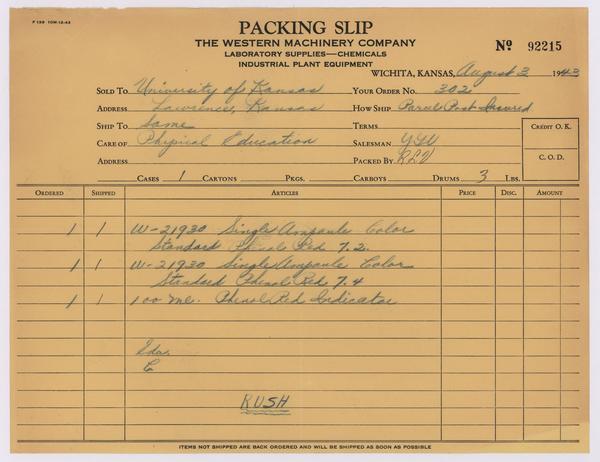 F 139 10M-12-42
PACKING SLIP
THE WESTERN MACHINERY COMPANY
LABORATORY SUPPLIES—CHEMICALS
INDUSTRIAL PLANT EQUIPMENT
No 92215
WICHITA, KANSAS, August 3 1943
SOLD TO University of Kansas YOUR ORDER NO. 302
ADDRESS Lawrence, Kansas HOW SHIP Parcel Post Insured
SHIP TO Same TERMS
CARE OF Physical Education SALESMAN
ADDRESS PACKED BY
CREDIT O.K.
C. O. D.
CASES 1 CARTONS PKGS. CARBOYS DRUMS 3 LBS.
ORDERED SHIPPED ARTICLES PRICE DISC. AMOUNT
1 1 W-21930 Single Ampoule Color
Standard Phenol Red 7.2
1 1 W-21930 Single Ampoule Color
Standard Phenol Red 7.4
1 1 100 ml. Phenol Red Indicator
C
RUSH
ITEMS NOT SHIPPED ARE BACK ORDERED AND WILL BE SHIPPED AS SOON AS POSSIBLE